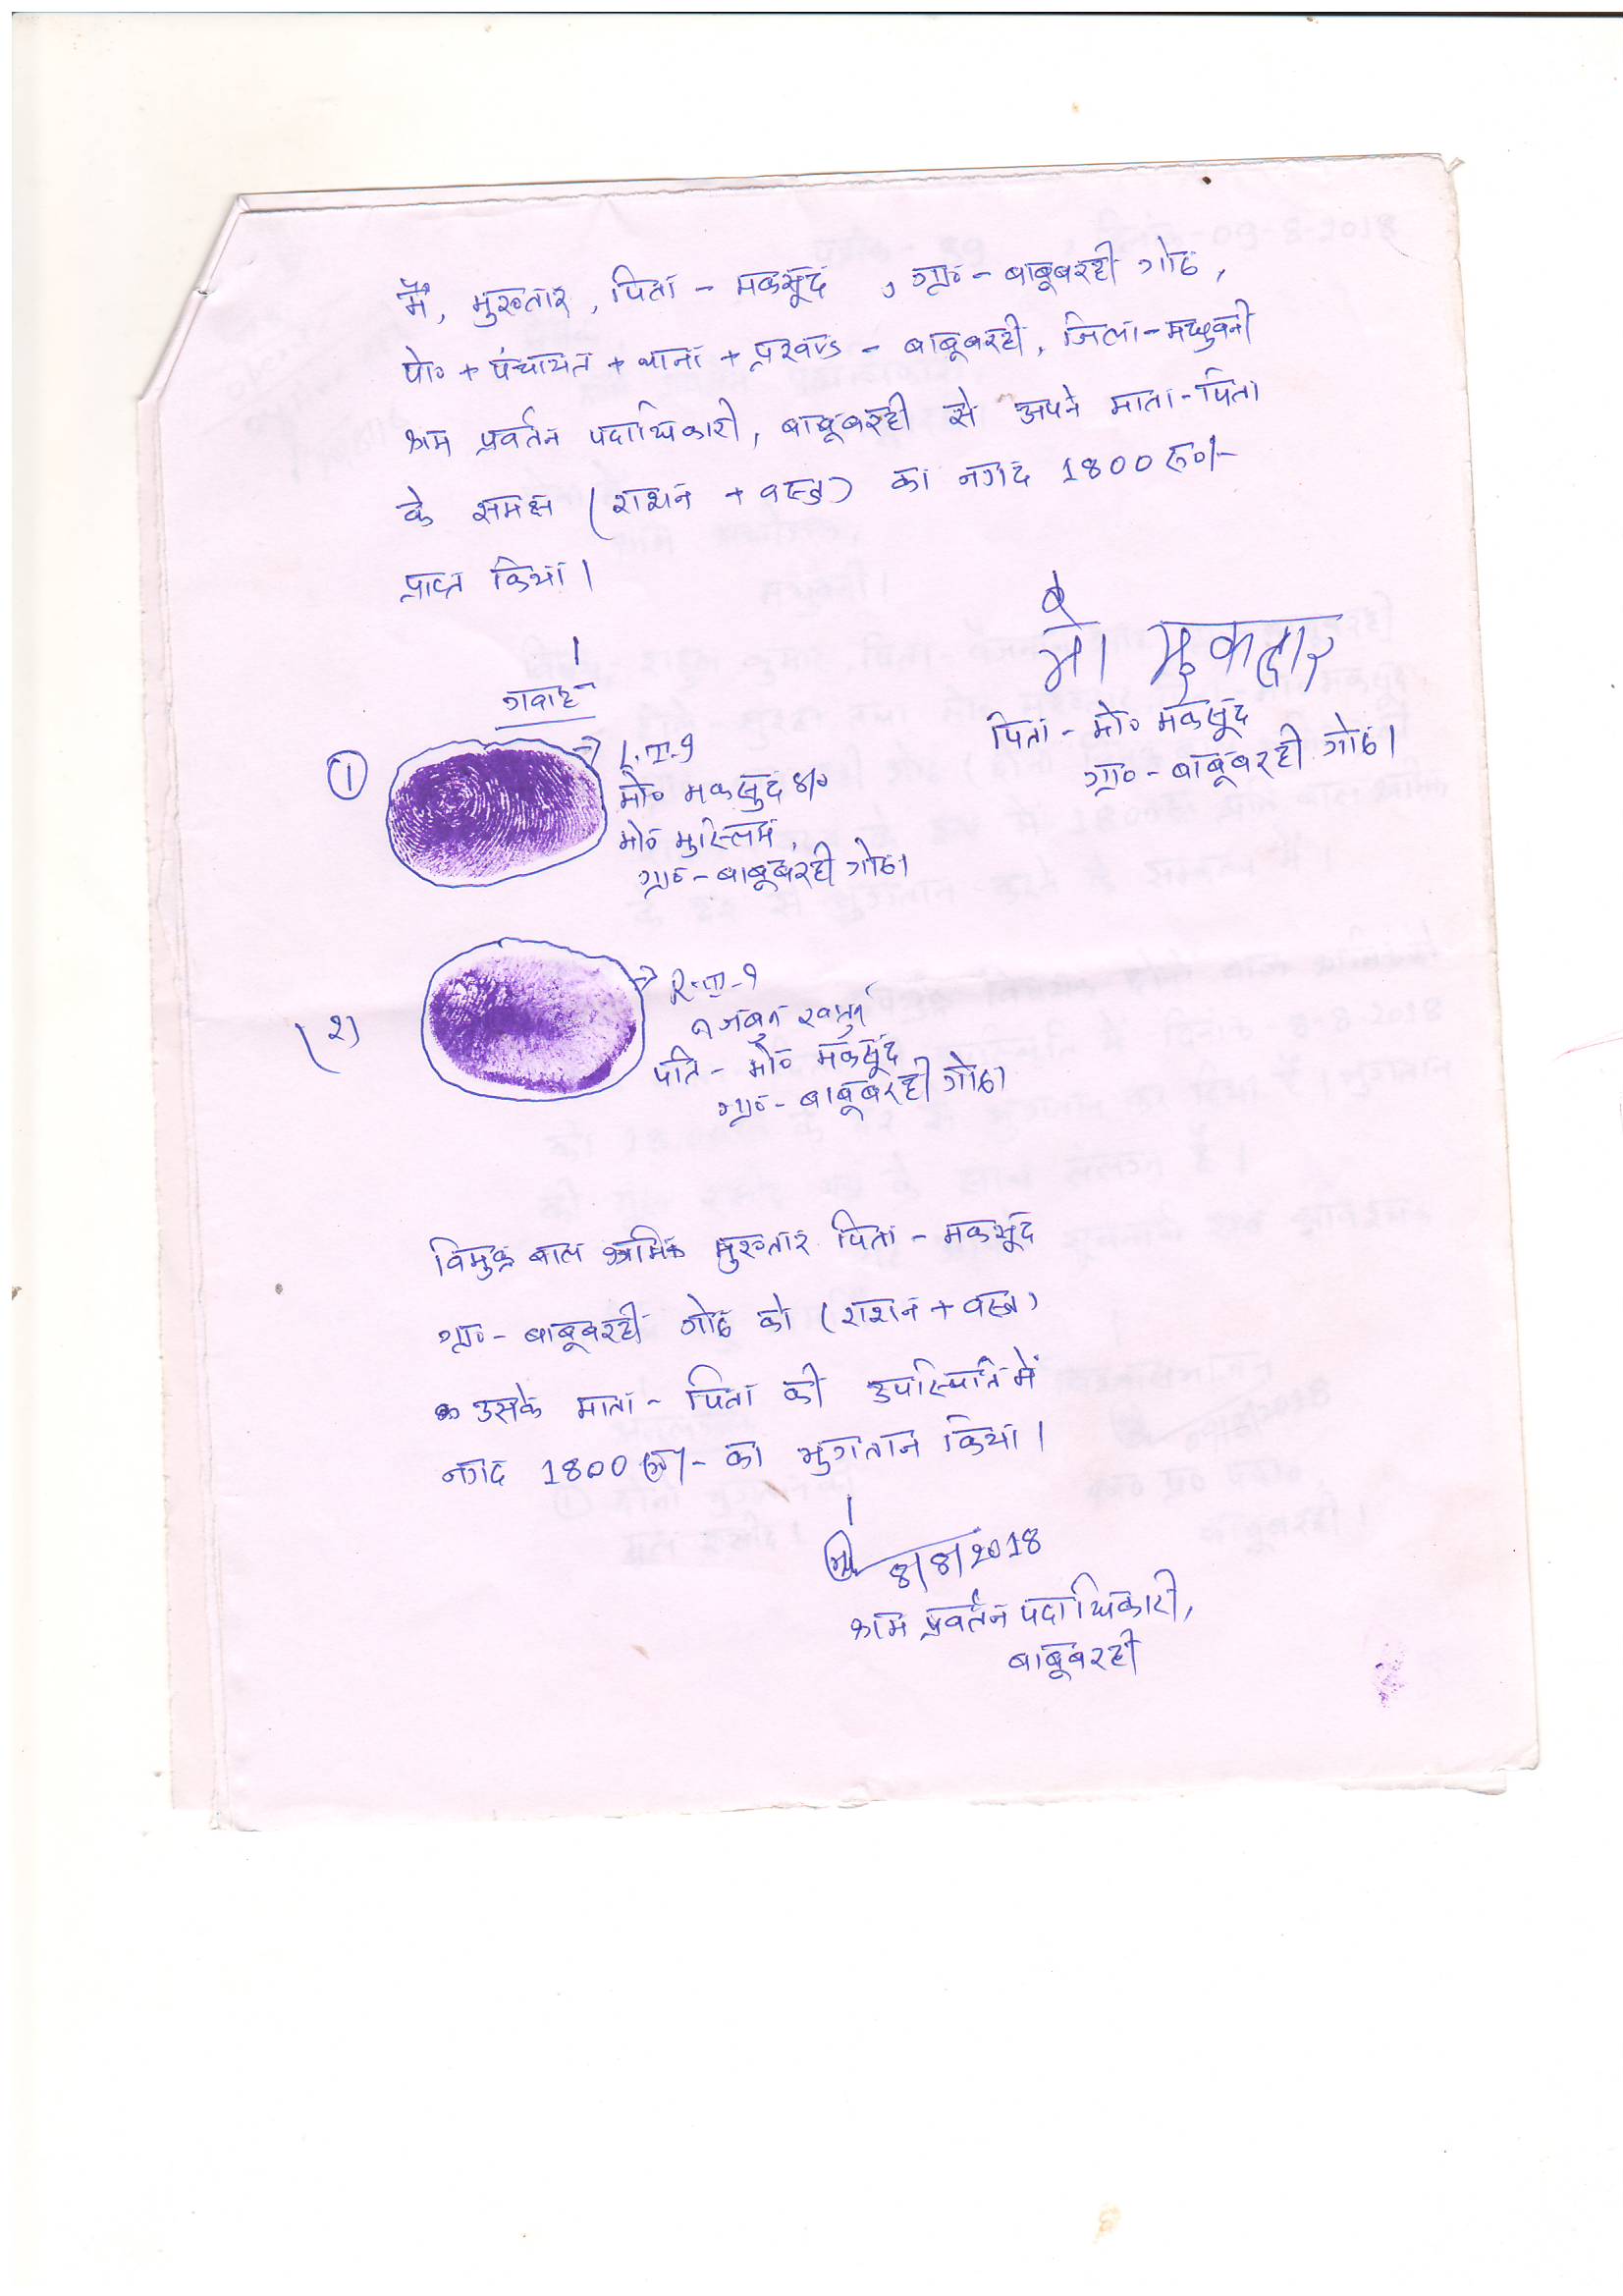 मैं, मुख्तार, पिता - मकसूद, ग्रा० - बाबूबरही गोठ,
पो० + पंचायत + थाना + प्रखण्ड - बाबूबरही, जिला - मधुबनी
श्रम प्रवर्तन पदाधिकारी, बाबूबरही से अपने माता - पिता
के समक्ष (राशन + वस्त्र) का नगद 1800 रु०/-
प्राप्त किया।
मो मुकतार
पिता - मो० मकसूद
ग्रा० - बाबूबरही गोठ।
गवाह
① L.T.I
मो० मकसुद S/o
मो० मुस्लिम,
ग्रा० - बाबूबरही गोठ।
(2) R.T.I
खातुन
पति - मो० मकसूद
ग्रा० - बाबूबरही गोठ।
विमुक्त बाल श्रमिक मुख्तार पिता - मकसूद
ग्रा० - बाबूबरही गोठ को (राशन + वस्त्र)
उसके माता - पिता की उपस्थिति में
नगद 1800 रु०/- का भुगतान किया।
8/8/2018
श्रम प्रवर्तन पदाधिकारी,
बाबूबरही